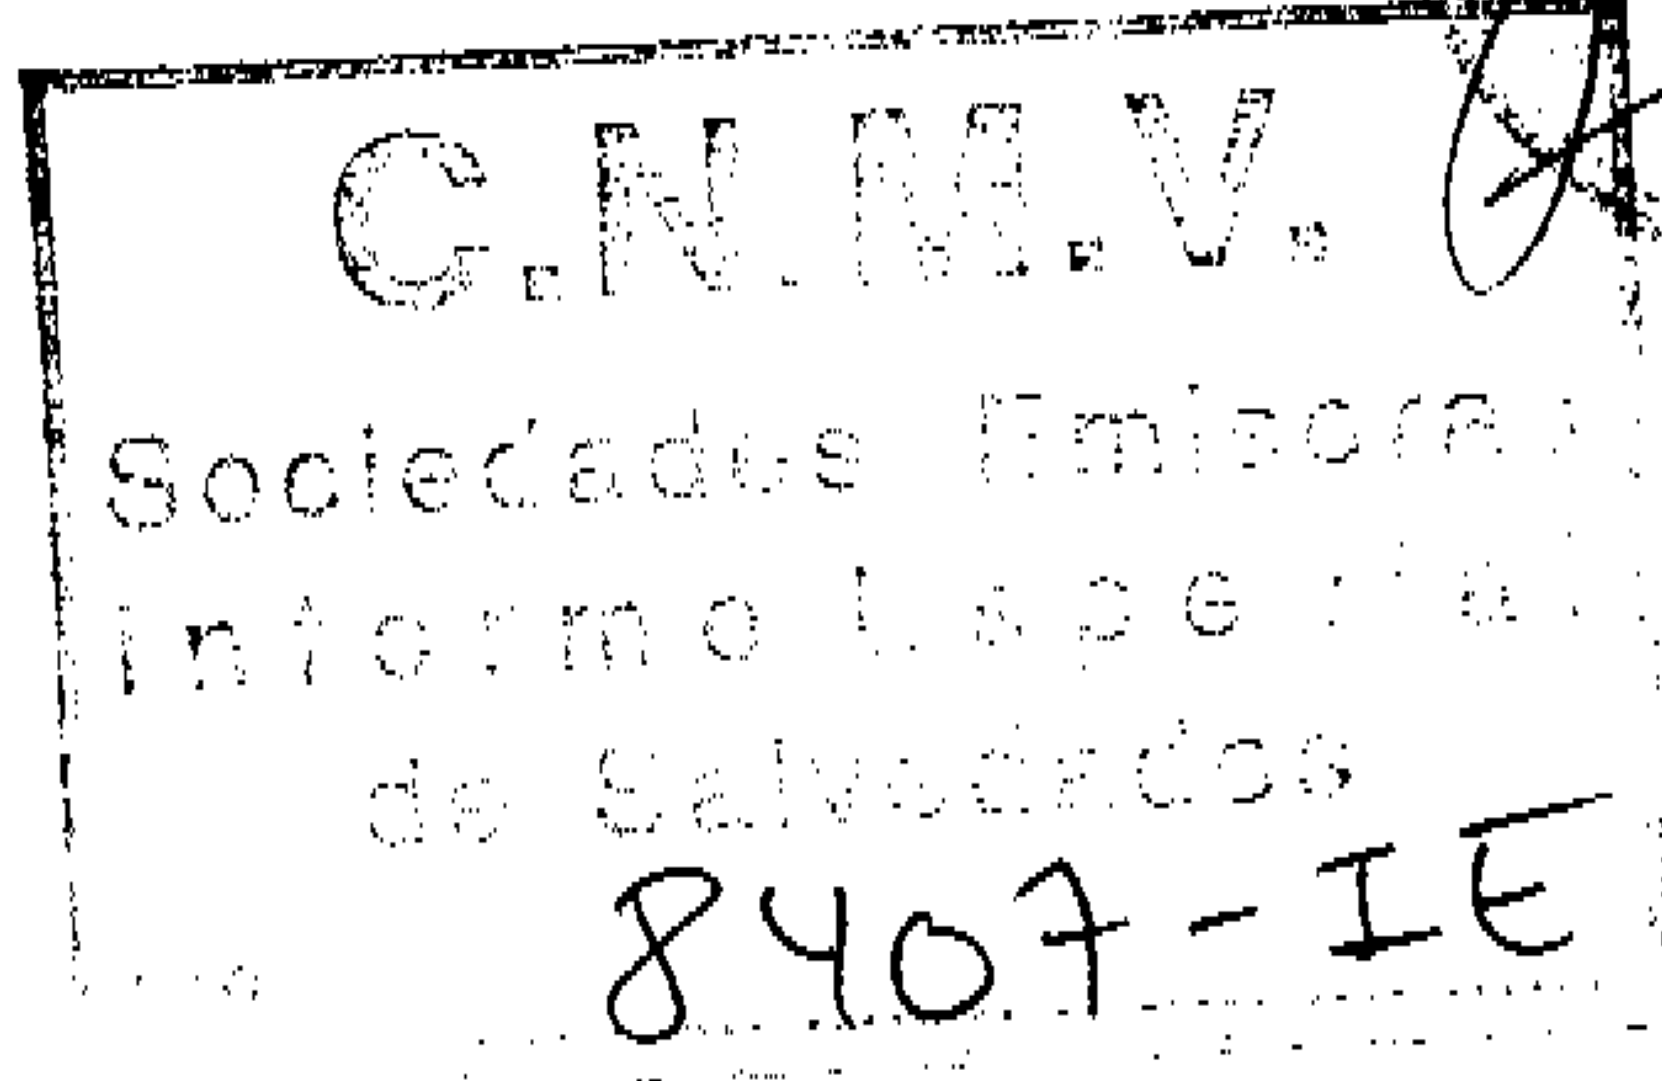 C.N.M.V.
Sociedades Emisoras
Informe Especial
de Salvedades
8407-IE